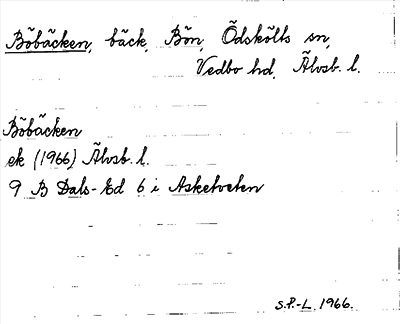 Böbäcken, bäck, Bön, Ödskölts sn,
Vedbo hd, Älvsb. l.
Böbäcken
ek (1966) Älvsb. l.
9 B Dals-Ed 6 i Asketveten
S.P.-L. 1966.